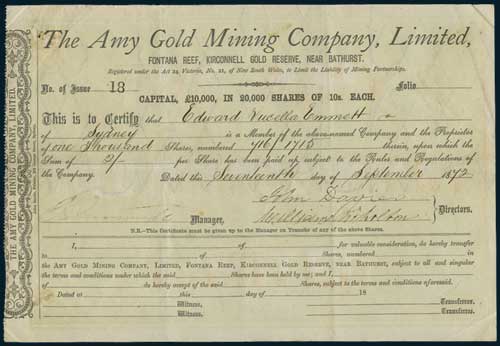 The Amy Gold Mining Company, Limited,
FONTANA REEF, KIRCONNELL GOLD RESERVE, NEAR BATHURST.
Registered under the Act 24 Victoria, No. 21, of New South Wales, to Limit the Liability of Mining Partnerships.
No. of Issue 18 Folio
CAPITAL, £10,000, IN 20,000 SHARES OF 10s. EACH.
This is to Certify that Edward Emmett
of Sydney is a Member of the above-named Company and the Proprietor
of one Thousand Shares, numbered 716/1715 therein, upon which the
Sum of 2/- per Share has been paid up, subject to the Rules and Regulations of
the Company. Dated the Seventeenth day of September 1872
John Davies
Manager, William Directors.
N.B.—This Certificate must be given up to the Manager on Transfer of any of the above Shares.
I, of for valuable consideration, do hereby transfer
to of Shares, numbered in
the AMY GOLD MINING COMPANY, LIMITED, FONTANA REEF, KIRCONNELL GOLD RESERVE, NEAR BATHURST, subject to all and singular
the terms and conditions under which the said Shares have been held by me; and I,
of do hereby accept of the said Shares, subject to the terms and conditions aforesaid.
Dated at this day of 18
Witness. Transferror.
Witness. Transferree.
THE AMY GOLD MINING COMPANY, LIMITED.